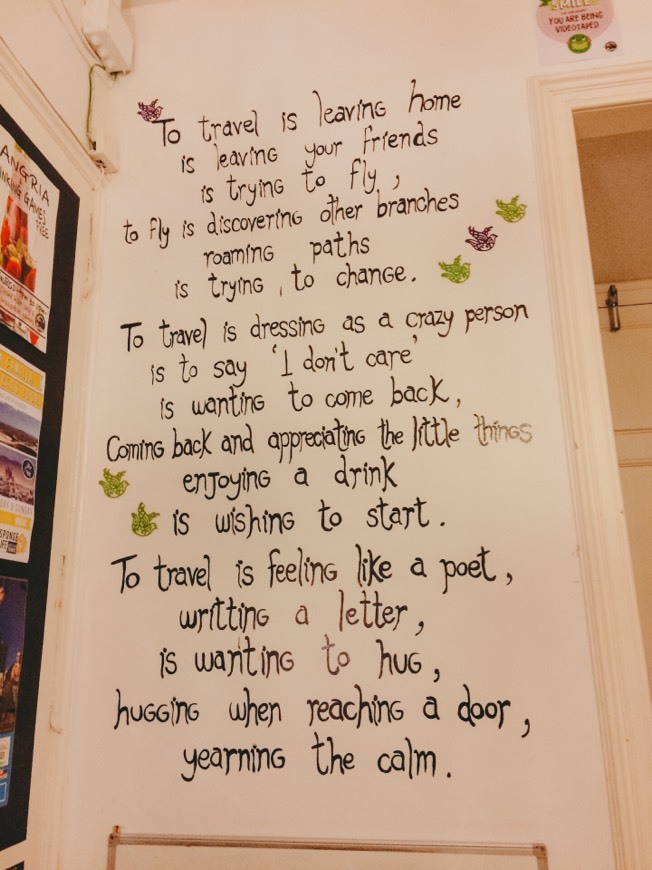 SMILE
YOU ARE BEING
VIDEOTAPED
To travel is leaving home
is leaving your friends
is trying to fly,
to fly is discovering other branches
roaming paths
is trying, to change.
To travel is dressing as a crazy person
is to say 'I don't care'
is wanting to come back,
Coming back and appreciating the little things
enjoying a drink
is wishing to start.
To travel is feeling like a poet,
writting a letter,
is wanting to hug,
hugging when reaching a door,
yearning the calm.
ANGRIA
GAMES
FREE